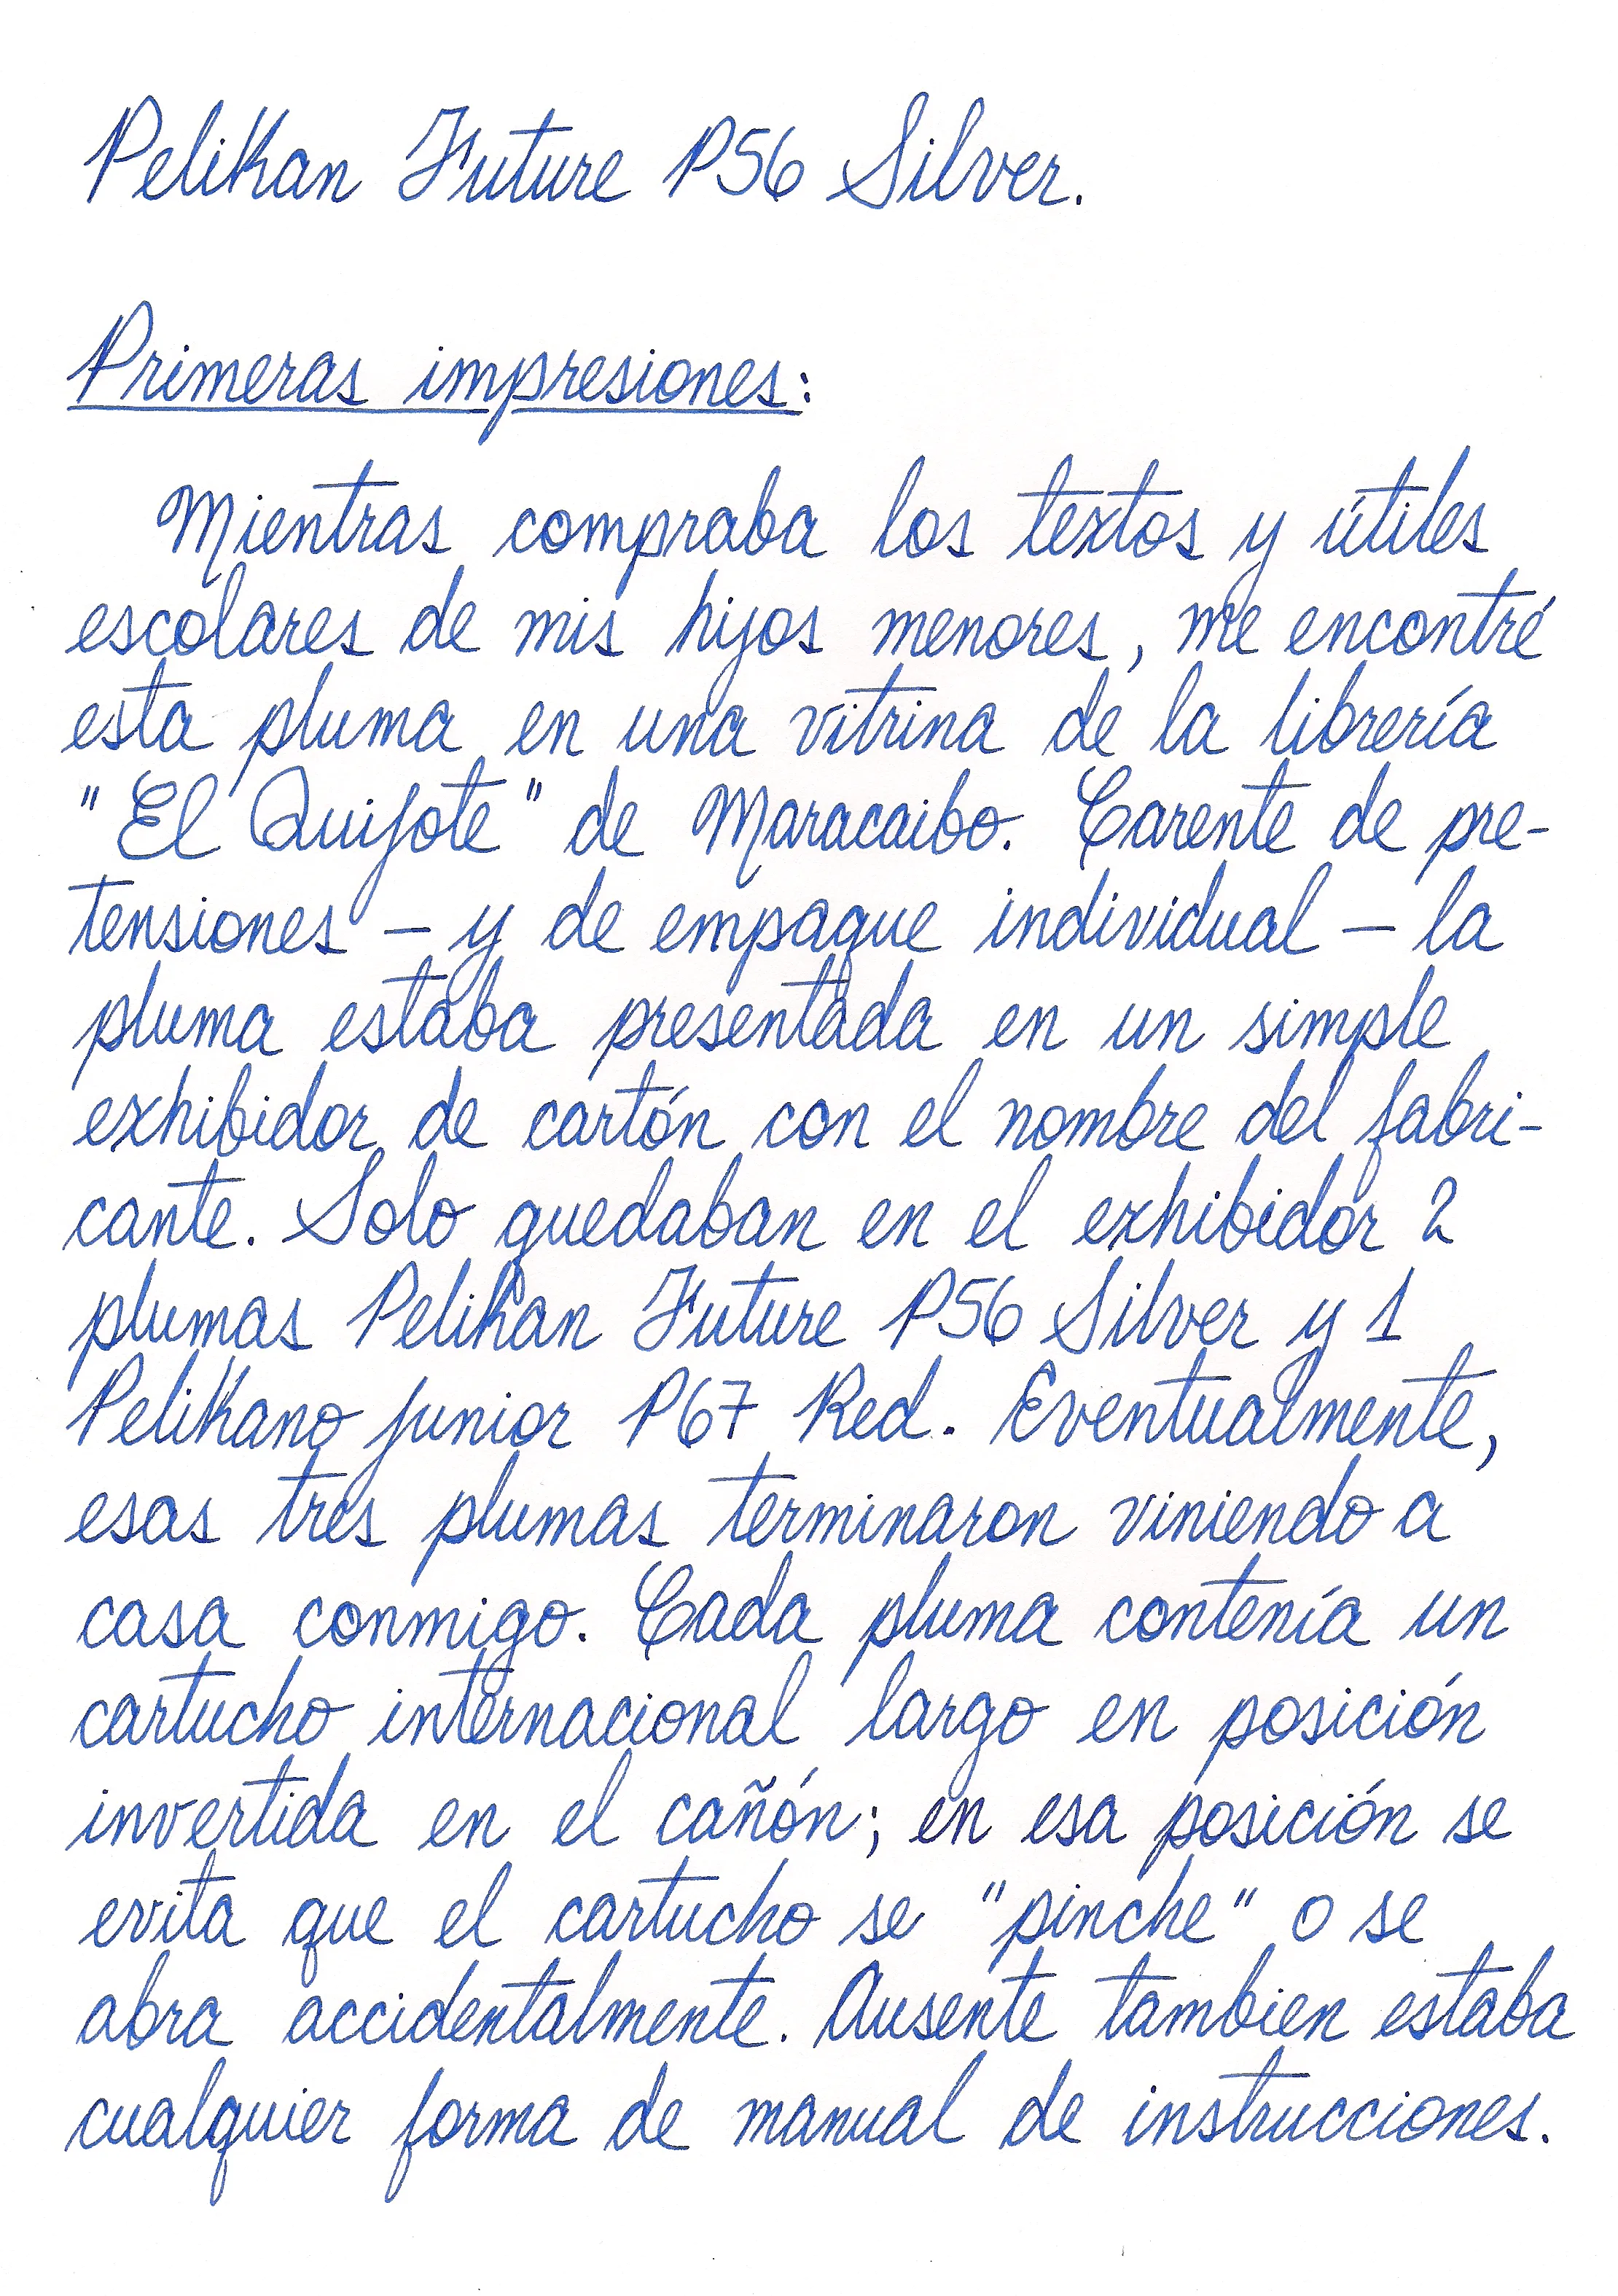 Pelikan Future P56 Silver.
Primeras impresiones:
Mientras compraba los textos y útiles
escolares de mis hijos menores, me encontré
esta pluma en una vitrina de la librería
"El Quijote" de Maracaibo. Carente de pre-
tensiones - y de empaque individual - la
pluma estaba presentada en un simple
exhibidor de cartón con el nombre del fabri-
cante. Solo quedaban en el exhibidor 2
plumas Pelikan Future P56 Silver y 1
Pelikano junior P67 Red. Eventualmente,
esas tres plumas terminaron viniendo a
casa conmigo. Cada pluma contenía un
cartucho internacional largo en posición
invertida en el cañón; en esa posición se
evita que el cartucho se "pinche" o se
abra accidentalmente. Ausente tambien estaba
cualquier forma de manual de instrucciones.